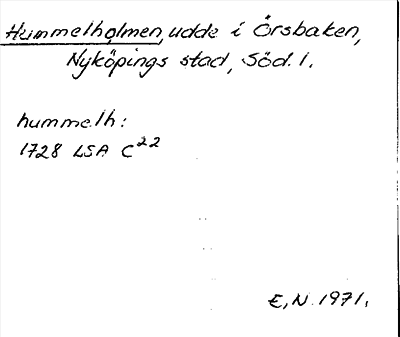 Hummelholmen, udde i Örsbaken,
Nyköpings stad, Söd. l.
hummelh:
1728 LSA C22
E, N. 1971.